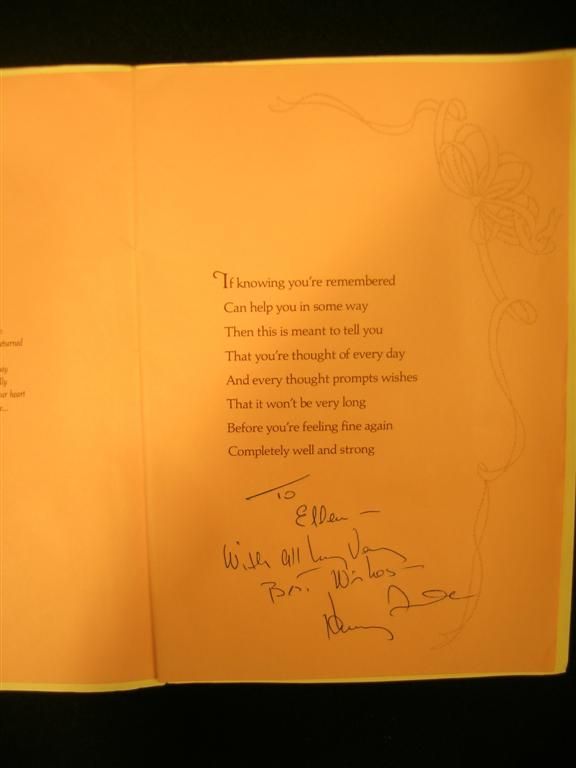 eturned
ur heart
If knowing you're remembered
Can help you in some way
Then this is meant to tell you
That you're thought of every day
And every thought prompts wishes
That it won't be very long
Before you're feeling fine again
Completely well and strong
To
Ellen —
With all my Very
Best Wishes —
Henry